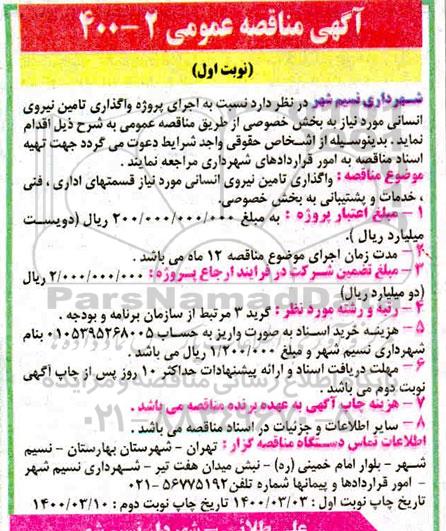 آگهی مناقصه عمومی ۲ -۴۰۰
(نوبت اول)
شهرداری نسیم شهر در نظر دارد نسبت به اجرای پروژه واگذاری تامین نیروی
انسانی مورد نیاز به بخش خصوصی از طریق مناقصه عمومی به شرح ذیل اقدام
نماید . بدینوسیله از اشخاص حقوقی واجد شرایط دعوت می گردد جهت تهیه
اسناد مناقصه به امور قراردادهای شهرداری مراجعه نمایند .
موضوع مناقصه : واگذاری تامین نیروی انسانی مورد نیاز قسمتهای اداری ، فنی
، خدمات و پشتیبانی به بخش خصوصی.
۱ – مبلغ اعتبار پروژه : به مبلغ ۲۰۰/۰۰۰/۰۰۰/۰۰۰ ریال (دویست
میلیارد ریال ).
۲– مدت زمان اجرای موضوع مناقصه ۱۲ ماه می باشد .
۳ – مبلغ تضمین شرکت در فرایند ارجاع پروژه : ۲/۰۰۰/۰۰۰/۰۰۰ ریال
(دو میلیارد ریال)
۴ – رتبه و رشته مورد نظر : گرید ۳ مرتبط از سازمان برنامه و بودجه .
۵ – هزینه خرید اسناد به صورت واریز به حساب ۰۱۰۵۳۹۵۲۶۸۰۰۵ بنام
شهرداری نسیم شهر و مبلغ ۱/۲۰۰/۰۰۰ ریال می باشد .
۶ – مهلت دریافت اسناد و ارائه پیشنهادات حداکثر ۱۰ روز پس از چاپ آگهی
نوبت دوم می باشد .
۷ – هزینه چاپ آگهی به عهده برنده مناقصه می باشد .
۸ – سایر اطلاعات و جزئیات در اسناد مناقصه می باشد .
اطلاعات تماس دستگاه مناقصه گزار : تهران – شهرستان بهارستان – نسیم
شهر – بلوار امام خمینی (ره) – نبش میدان هفت تیر – شهرداری نسیم شهر
– امور قراردادها و پیمانها شماره تلفن ۵۶۷۷۵۱۹۲-۰۲۱
تاریخ چاپ نوبت اول : ۱۴۰۰/۰۳/۰۳ تاریخ چاپ نوبت دوم : ۱۴۰۰/۰۳/۱۰